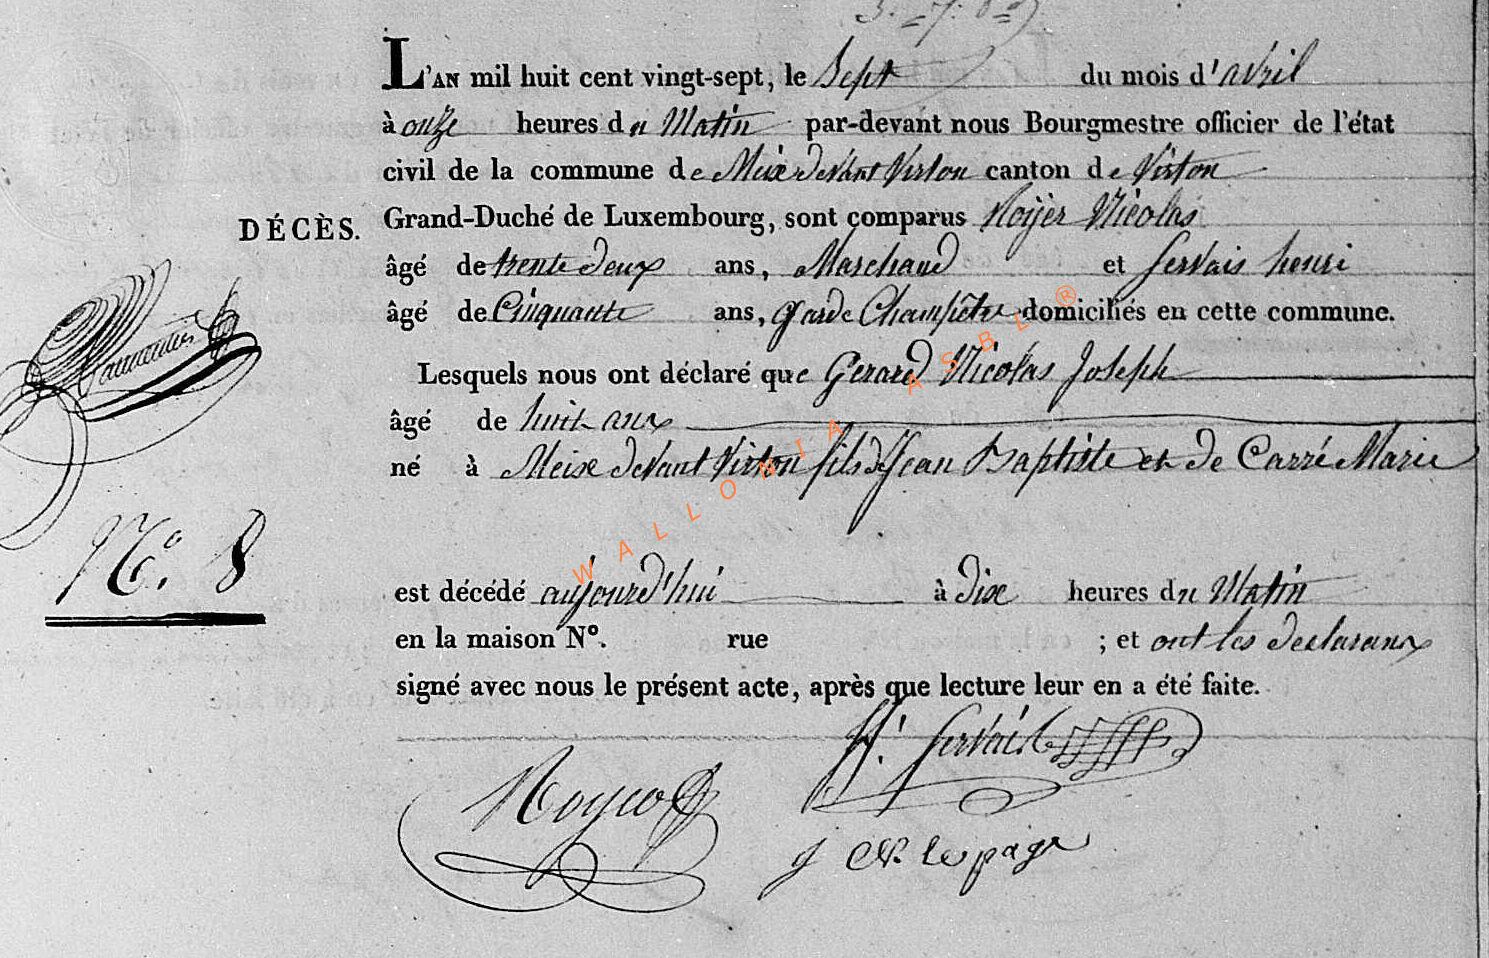 L'AN mil huit cent vingt-sept, le Sept du mois d'avril
à onze heures du Matin par-devant nous Bourgmestre officier de l'état
civil de la commune de Meix devant Virton canton de Virton
DÉCÈS. Grand-Duché de Luxembourg, sont comparus Noÿer Nicolas
âgé de trente deux ans, Marchand et Servais henri
âgé de Cinquante ans, garde Champêtre domiciliés en cette commune.
Lesquels nous ont déclaré que Gerard Nicolas Joseph
âgé de huit ans
né à Meix devant Virton fils de Jean Baptiste et de Carré Marie
N.° 8
est décédé aujourd'hui à dix heures du Matin
en la maison N°. rue ; et ont les declarans
signé avec nous le présent acte, après que lecture leur en a été faite.
H. Servais
J CN. lepage
WALLONIA ASBL ®